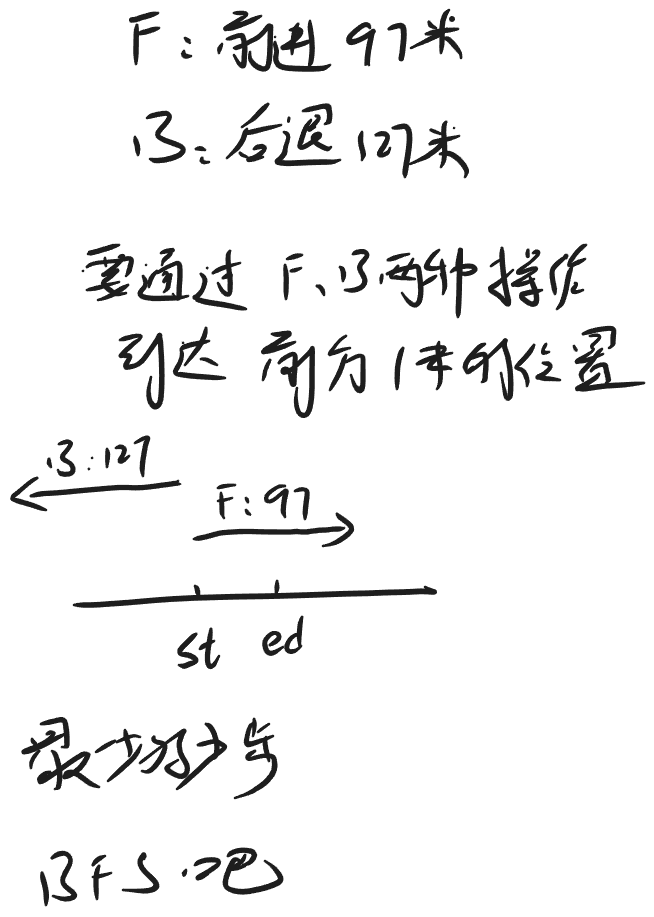 F:前进97米
B:后退127米
要通过F、B两种操作
到达前方1米的位置
B:127
F:97
st ed
最少多少步
BFS吧